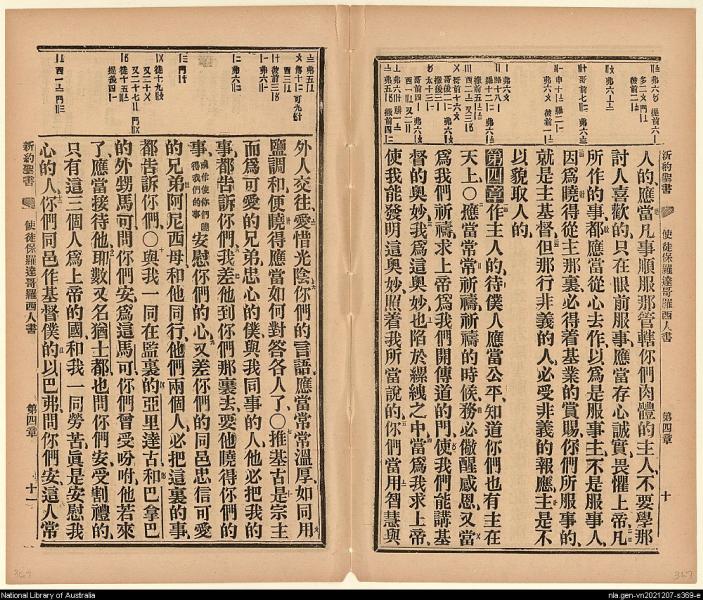 新約聖書
使徒保羅達哥羅西人書
第四章
十
人的、應當凡事順服那管轄你們肉體的主人、不要學那
討人喜歡的、只在眼前服事、應當存心誠實、畏懼上帝、凡
所作的事、都應當從心去作、以爲是服事主、不是服事人、
因爲曉得從主那裏必得着基業的賞賜、你們所服事的、
就是主基督、但那行非義的人、必受非義的報應、主是不
以貌取人的、
第四章 作主人的、待僕人應當公平、知道你們也有主在
天上、〇應當常常祈禱、祈禱的時候、務必儆醒感恩、又當
爲我們祈禱、求上帝爲我們開傳道的門、使我們能講基
督的奧妙、我爲這奧妙、也陷於縲絏之中、當爲我求上帝、
使我能發明這奧妙、照着我所當說的、你們當用智慧與
外人交往、愛惜光陰、你們的言語、應當常常溫厚、如同用
鹽調和、便曉得應當如何對答各人了、〇推基古是宗主
而爲可愛的兄弟、忠心的僕、與我同事的人、他必把我的
事都告訴你們、我差他到你們那裏去、要他曉得你們的
事、安慰你們的心、又差你們的同邑、忠信可愛
的兄弟阿尼西母和他同行、他們兩個人、必把這裏的事、
都告訴你們、〇與我一同在監裏的亞里達古、和巴拿巴
的外甥馬可、問你們安、爲這馬可、你們曾受吩咐、他若來
了、應當接待他、耶數又名猶士都、也問你們安、受割禮的、
只有這三個人、爲上帝的國、和我一同勞苦、眞是安慰我
心的人、你們同邑作基督僕的以巴弗、問你們安、這人常
新約聖書
使徒保羅達哥羅西人書
第四章
十一
National Library of Australia
nla.gen-vn2021207-s369-e